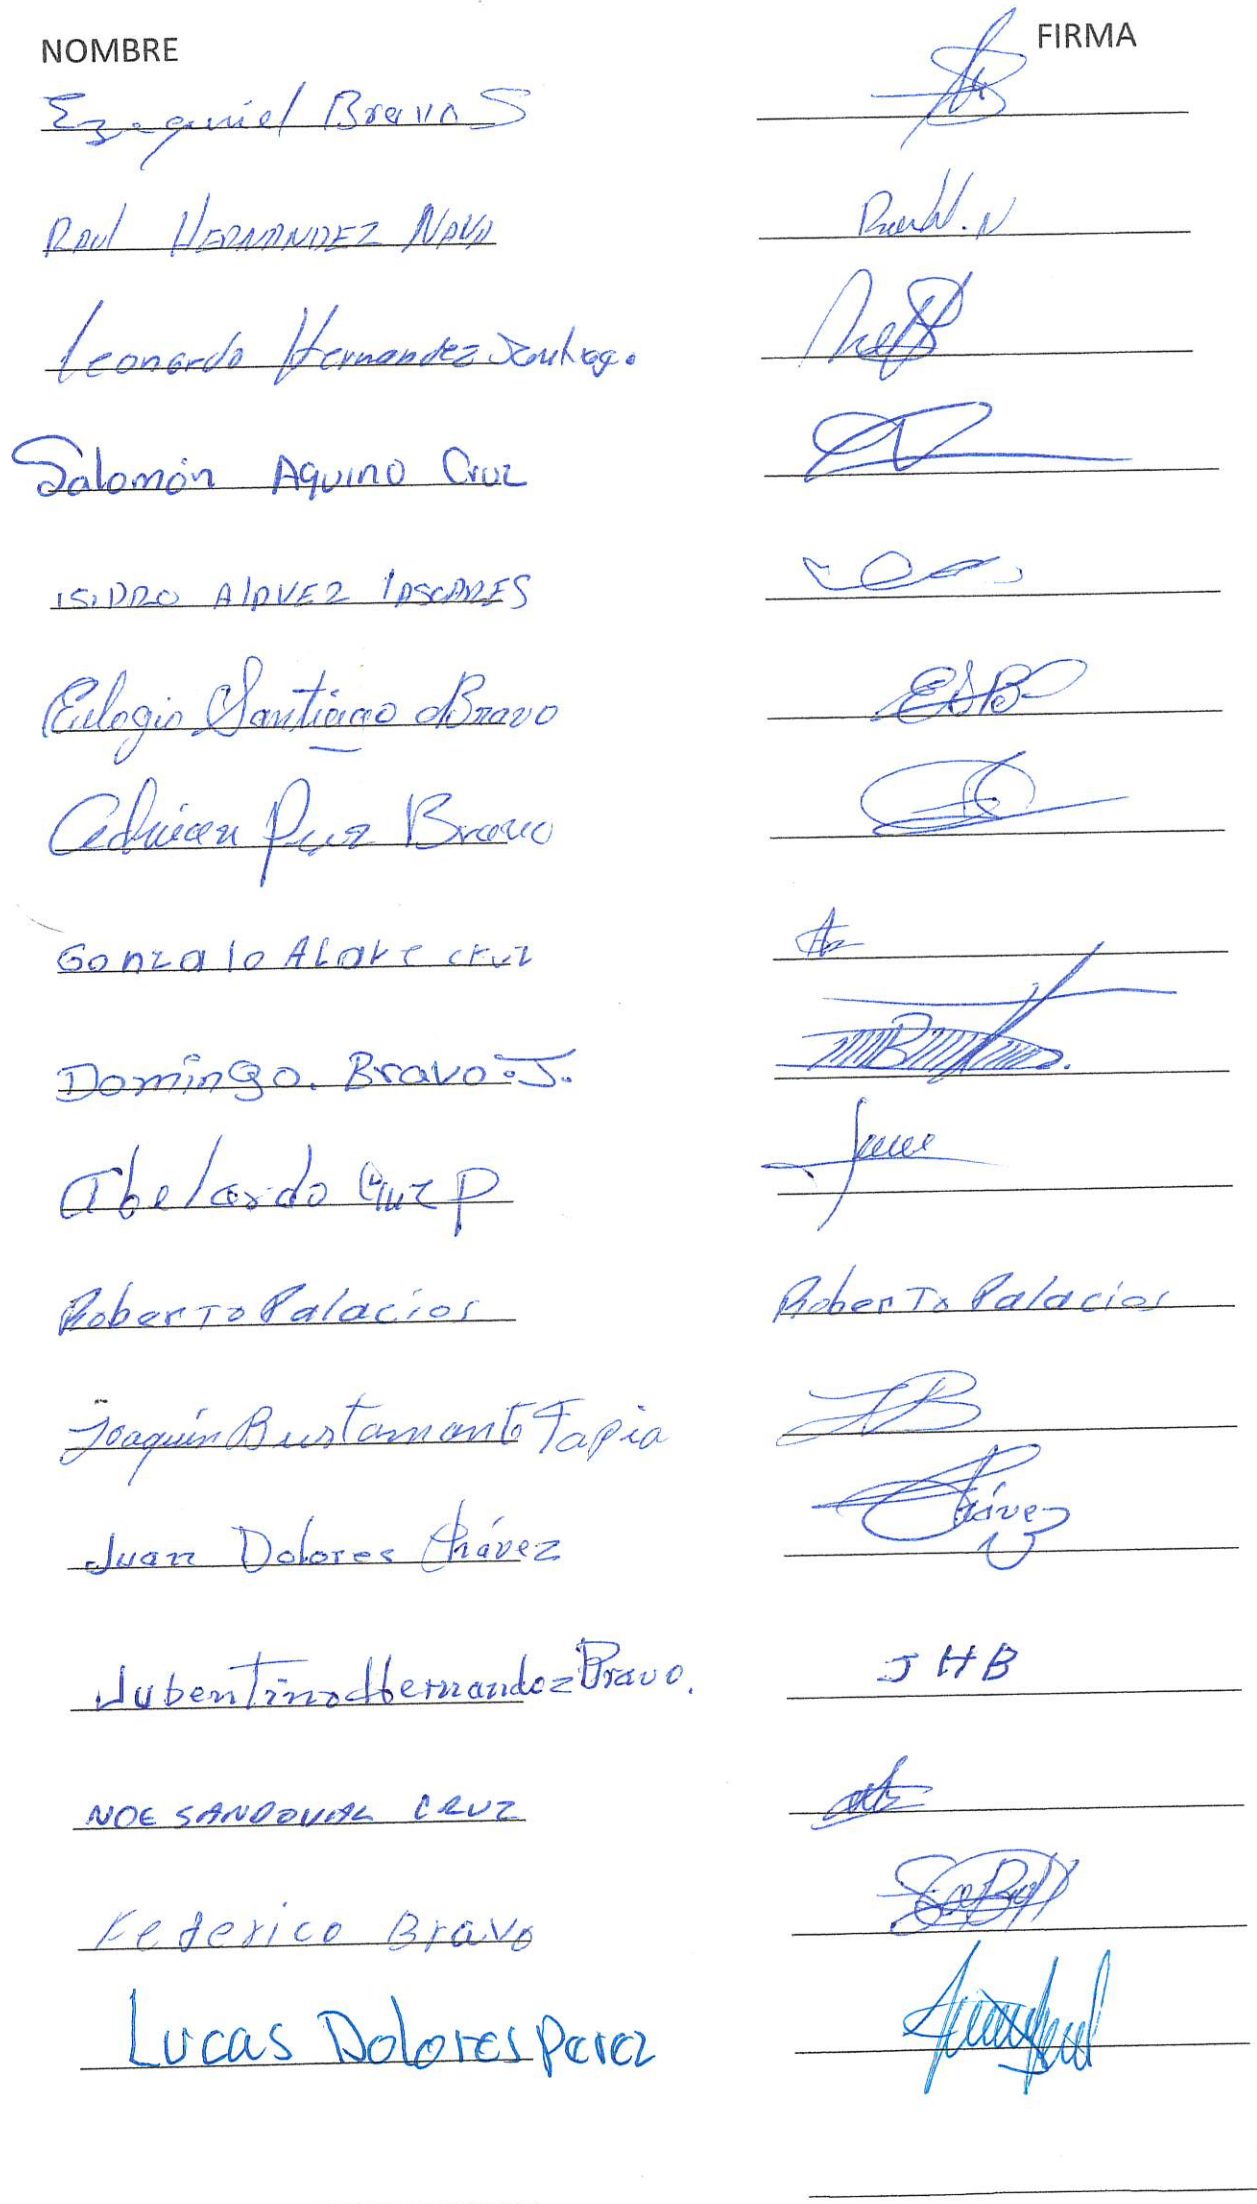 NOMBRE FIRMA
Ezequiel Bravo S
RAUL HERNANDEZ NAVA Raul H. N
Leonardo Hernandez Santiago.
Salomón Aquino Cruz
ISIDRO ALAVEZ
Eulogio Santiago Bravo ESB
Adrian Bravo
Gonzalo ALAVE Cruz
Domingo. Bravo. J. B
Abelardo Cruz P
Roberto Palacios Roberto Palacios
Joaquín Bustamante Tapia JB
Juan Dolores Chávez Chávez
Jubentino Hernandez Bravo. JHB
NOE SANDOVAL CRUZ
Federico Bravo
Lucas Dolores Perez